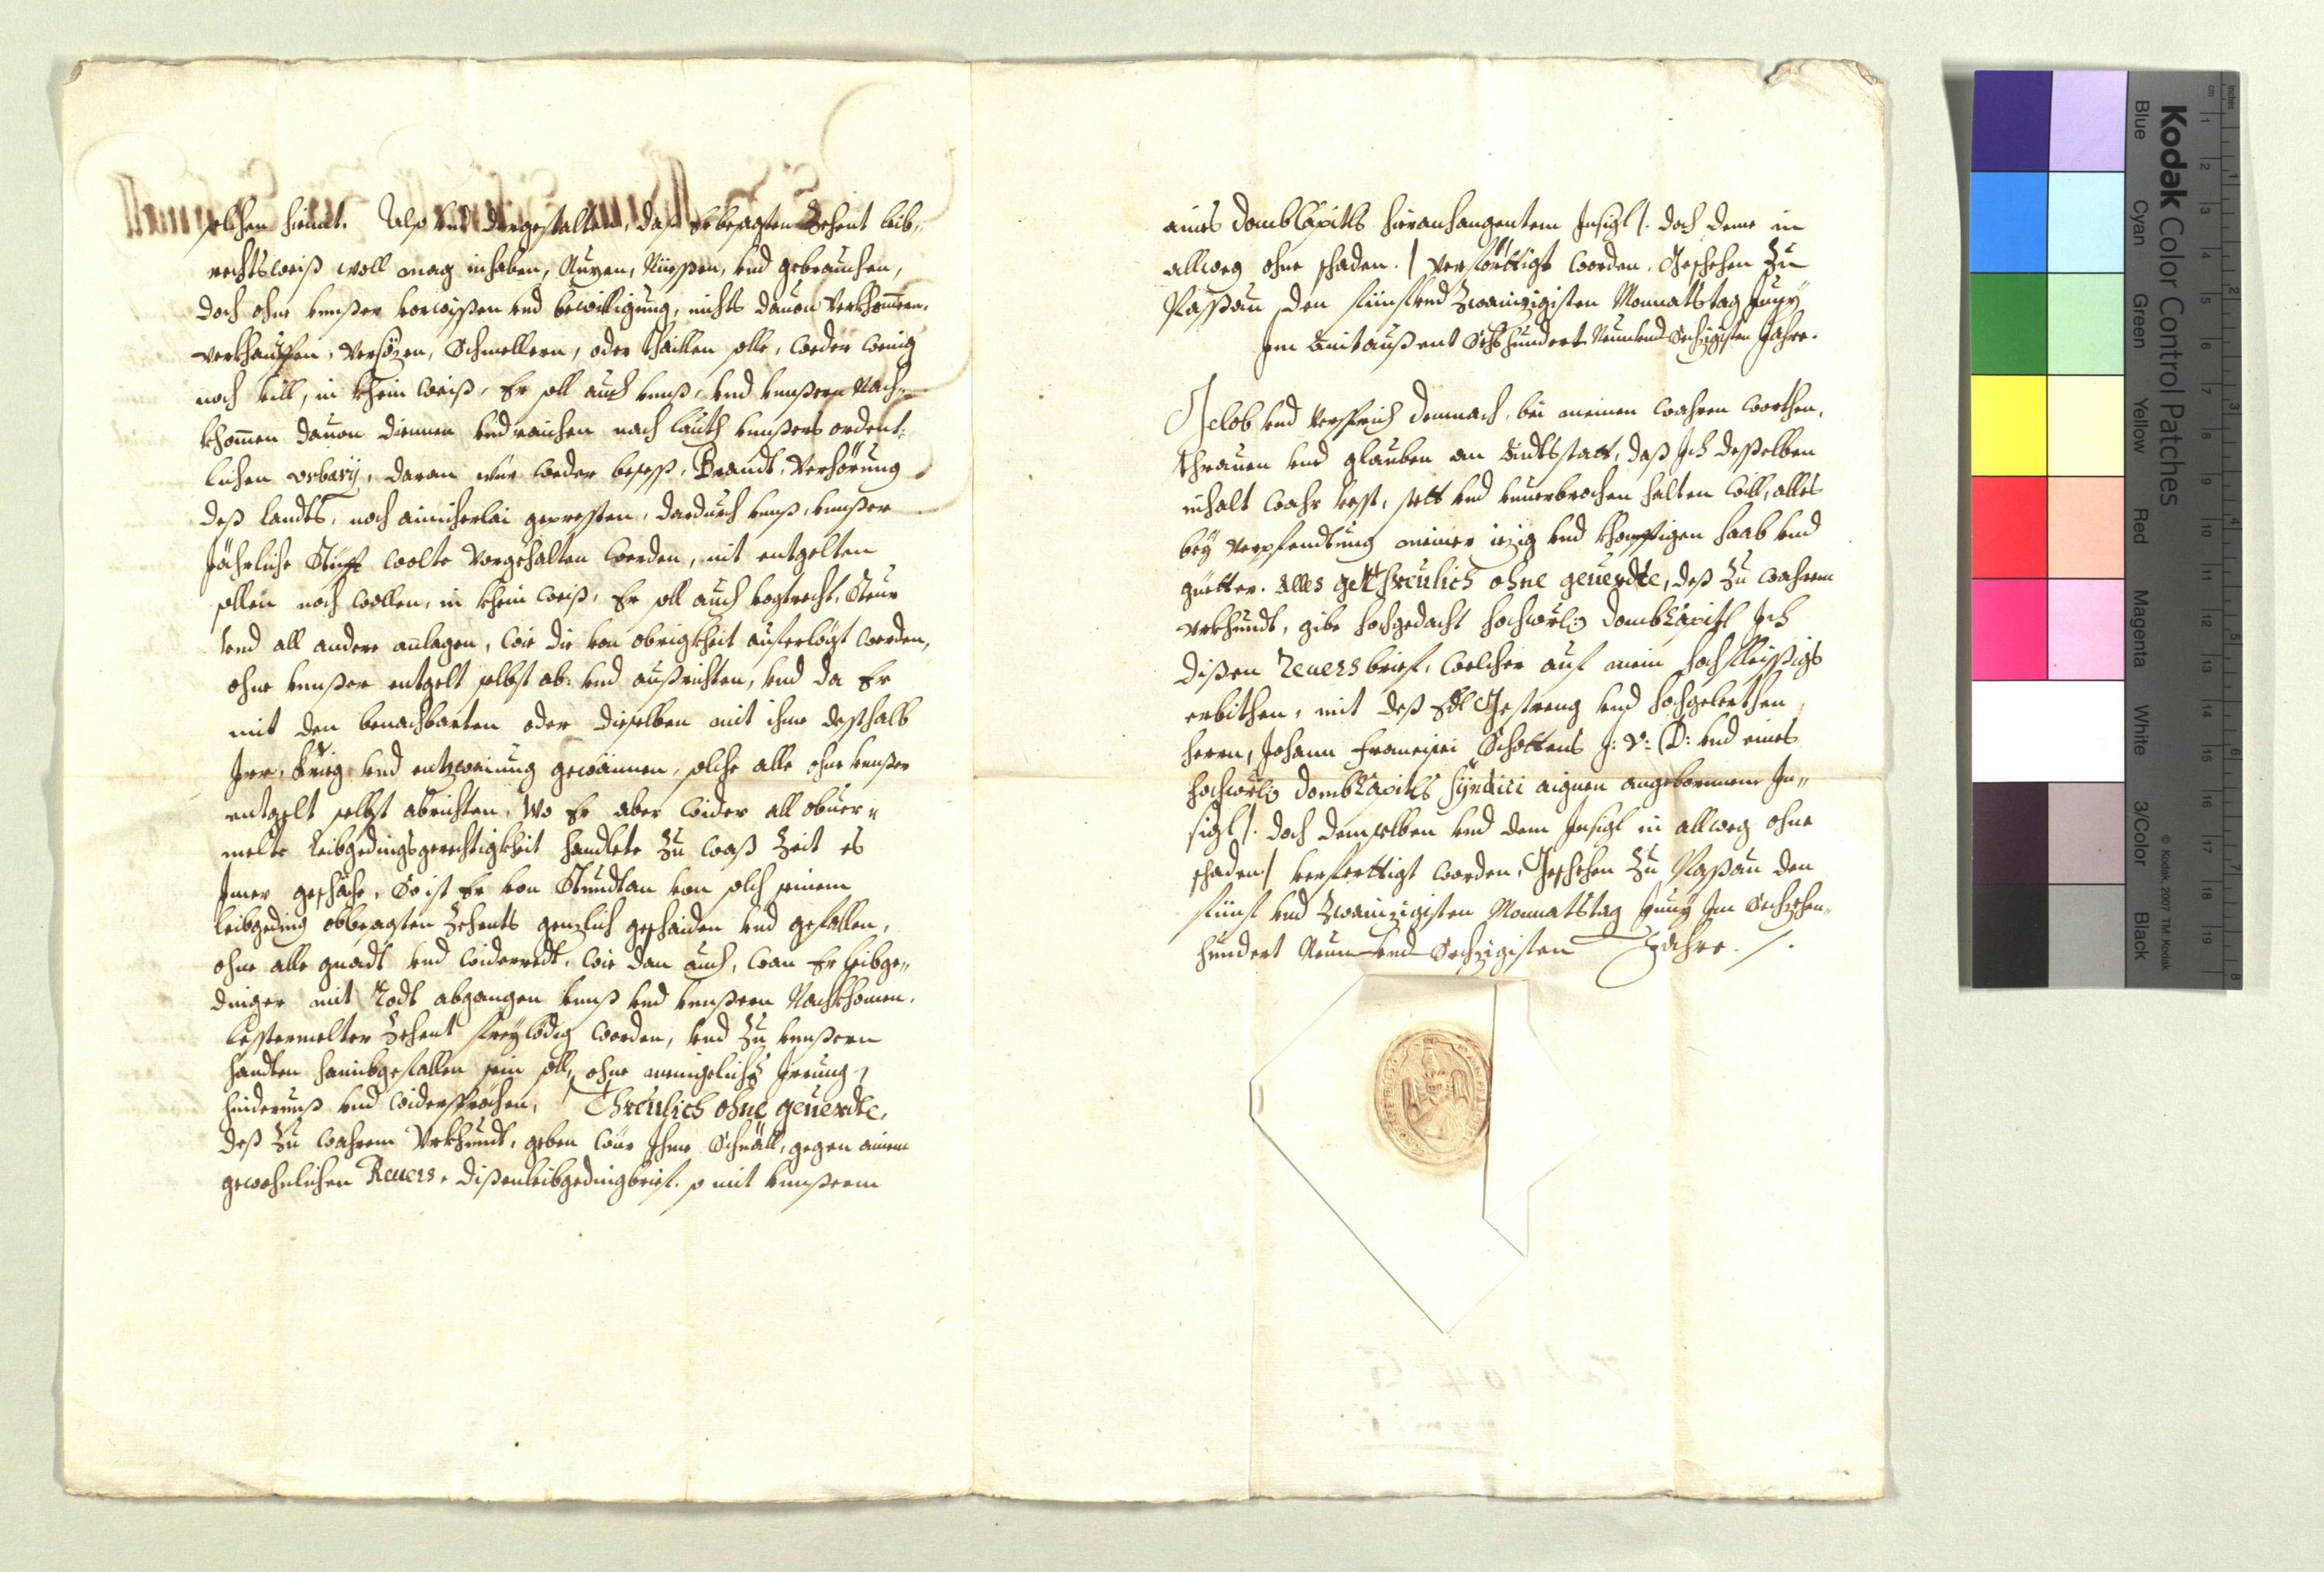 solchen hiemit. Also vnd dergestalten, daß Er besagten Zehent leib„
rechtsweiß woll mag inhaben, Nuzen, Niessen, vnd gebrauchen,
doch ohne vnnser vorwissen vnd bewilligung, nichts dauon verkhomern,
verkhauffen, versözen, Schmellern, oder thaillen solle, weder wenig
noch vill, in khein weiß, Er soll auch vnnß, vnd vnnsern Nach„
khomen dauon diennen vnd raichen nach lauth vnnsers ordent„
lichen vrbarÿ, daran wür weder besess, Brandt, Verhörung
deß landts, noch ainicherlai gepresten, dardurch vnnß, vnnser
Jährliche Stüfft wolte vorgehalten werden, nit entgelten
sollen noch wollen, in khein weiß, Er soll auch vogtrecht, Steur
vnd all andere anlagen, wie die von obrigkheit auferlögt werden,
ohne vnnser entgelt selbst ab: vnd außrichten, vnd da Er
mit den benachbarten oder dieselben mit ihme desthalb
Jrr, krieg vnd entzweiung gewünnen, solche alle ohne vnnser
entgelt selbst abrichten, Wo Er aber wider all obuer„
melte leibgedingsgerechtigkheit handlete zu waß Zeit es
Jmer geschähe, So ist Er von Stundtan von solch seinem
leibgeding obbesagten Zehents genzlich geschaiden vnd gefallen,
ohne alle gnadt vnd widerredt, wie dan auch, wan Er leibge„
dinger mit Todt abgangen vnnß vnd vnnsern Nachkhomen,
besstermelter Zehent freÿ lödig worden, vnd zu vnnsern
handten haimbgefallen sein soll, ohne meniglichs Jrrung,
hindernuß vnd widersprechen, Threulich ohne geuerdte,
deß zu wahrem Vrkhundt, geben wür Jhme Schnäll, gegen ainem
gewohnlichen Reuers, disen leibgedingbrief, so mit vnnserm
aines dombCapitls hieranhangentem Jnsigl /. doch deme in
allweg ohne schaden. / verförttigt worden. Geschehen Zu
Passau den fünf vnd Zwainzigisten Monnattstag Junÿ
Jm Aintaußent Sechshundert Neun vnd Sechzigisten Jahre.
Gelob vnd versprich demnach, bei meinen wahren worthen,
thrauen vnd glauben an Aidtsstatt, daß Jch deßelben
inhalt wahr vesst, stett vnd vnuerbrochen halten will, alles
beÿ verpfendtung meiner iezig vnd khonfftigen haab vnd
güetter. Alles gethreulich ohne geuerdte, deß zu wahrem
vrkhundt, gibe hochgedacht hochwürl: dombCapitl Jch
disen Reuersbrief, welcher auf mein hochfleissigs
erbithen, mit deß Edl Gestreng vnd hochgelerthen
herrn, Johann Francisci Schottens J: V: D: vnd eines
hochwürl: dombCapitls Sÿndici aignen angebornnem Jn„
sigl /. doch demselben vnd dem Jnsigl in allweg ohne
schaden / verferttigt worden, Geschehen zu Passau den
fünf vnd Zwainzigisten Monnattstag Junÿ Jm Sechzehen„
hundert Neun vnd Sechzigisten Jahre. /.
Kodak Color Control Patches
Blue Cyan Green Yellow Red Magenta White 3/Color Black
© Kodak, 2007 TM: Kodak